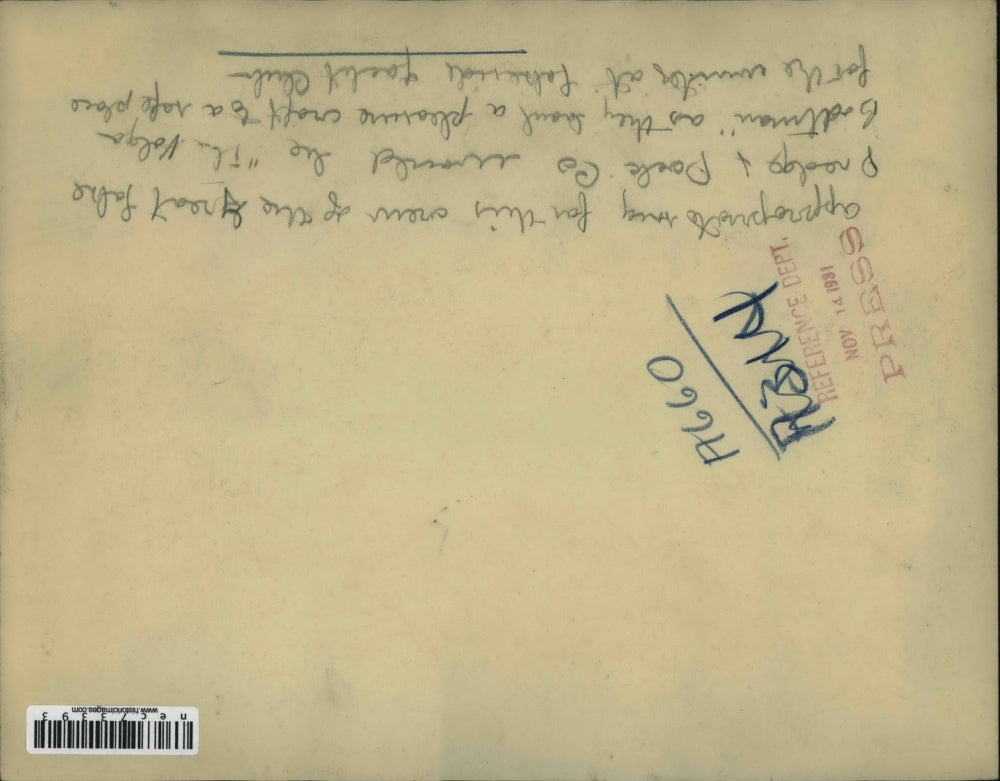 appropriate song for this crew of the Great Lake
Dredge & Dock Co would be "The Volga
Boatman" as they haul a pleasure craft to a safe place
for the winter at Lakeside Yacht Club
REFERENCE DEPT.
NOV 14 1931
PRESS
www.historicimages.com
n e c 7 3 3 9 3